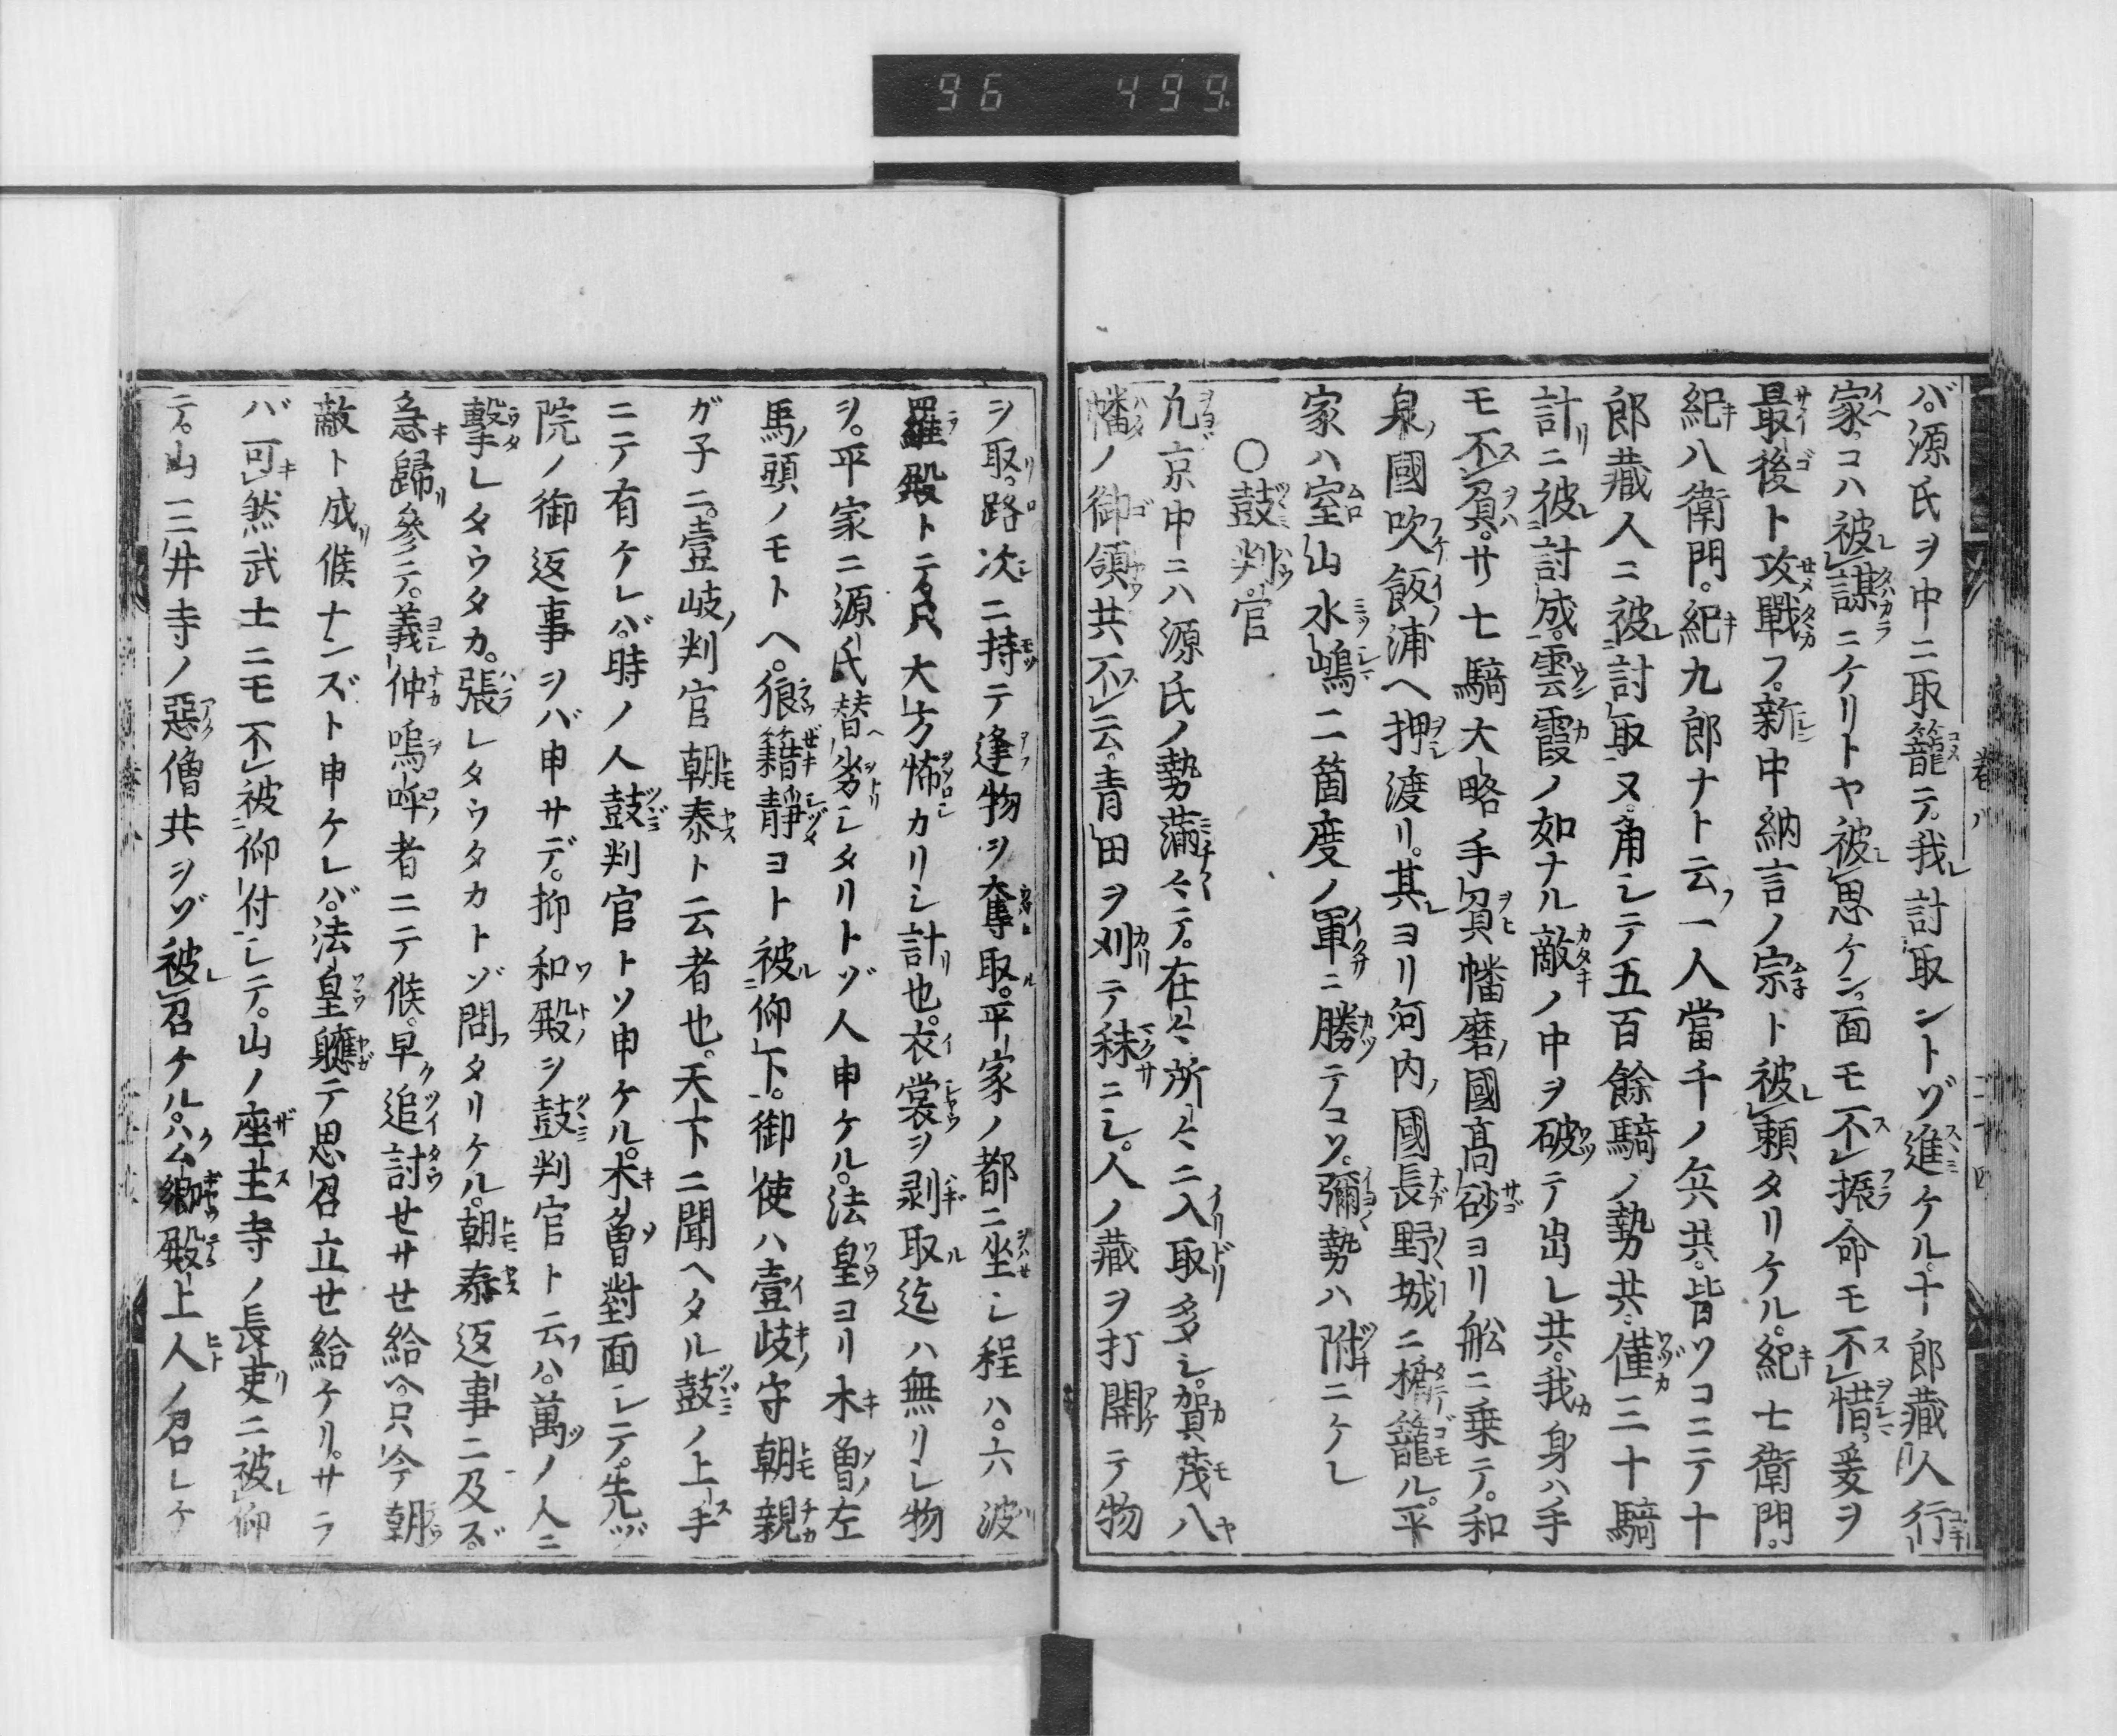 96 499
バ。源氏ヲ中ニ取籠テ。我討取ントゾ進ケル。十郎藏人行
家コハ被謀ニケリトヤ被思ケン。面モ不振命モ不惜爰ヲ
最後ト攻戰フ。新中納言ノ宗ト被頼タリケル。紀七衛門。
紀八衛門。紀九郎ナト云一人當千ノ兵共。皆ソコニテ十
郎藏人ニ被討取ヌ。角シテ五百餘騎ノ勢共。僅三十騎
計ニ被討成。雲霞ノ如ナル敵ノ中ヲ破テ出レ共。我身ハ手
モ不負。廿七騎大略手負幡磨國高砂ヨリ舩ニ乗テ。和
泉國吹飯浦ヘ押渡リ。其ヨリ河内國長野城ニ楯籠ル。平
家ハ室山水嶋二箇度ノ軍ニ勝テコソ。彌勢ハ附ニケレ
〇鼓判官
凡京中ニハ源氏ノ勢滿々テ。在々所々ニ入取多シ。賀茂八
幡ノ御領共不云。青田ヲ刈テ秣ニシ。人ノ藏ヲ打開テ物
ヲ取。路次ニ持テ逢物ヲ奪取。平家ノ都ニ坐シ程ハ。六波
羅殿トテ只大方怖カリシ計也。衣裳ヲ剥取迄ハ無リシ物
ヲ。平家ニ源氏替劣シタリトゾ人申ケル。法皇ヨリ木曾左
馬頭ノモトヘ。狼籍靜ヨト被仰下。御使ハ壹岐守朝親
ガ子ニ。壹岐判官朝泰ト云者也。天下ニ聞ヘタル鼓ノ上手
ニテ有ケレバ。時ノ人鼓判官トソ申ケル。木曾對面シテ。先ヅ
院ノ御返事ヲバ申サデ。抑和殿ヲ鼓判官ト云ハ。萬ノ人ニ
擊レタウタカ。張レタウタカトゾ問タリケル。朝泰返事ニ及ズ。
急歸參テ。義仲嗚呼者ニテ候。早追討せサせ給ヘ。只今朝
敵ト成候ナンズト申ケレバ。法皇軈テ思召立せ給ケリ。サラ
バ可然武士ニモ不被仰付シテ。山ノ座主寺ノ長吏ニ被仰
テ。山三井寺ノ惡僧共ヲゾ被召ケル。公卿殿上人ノ召レケ